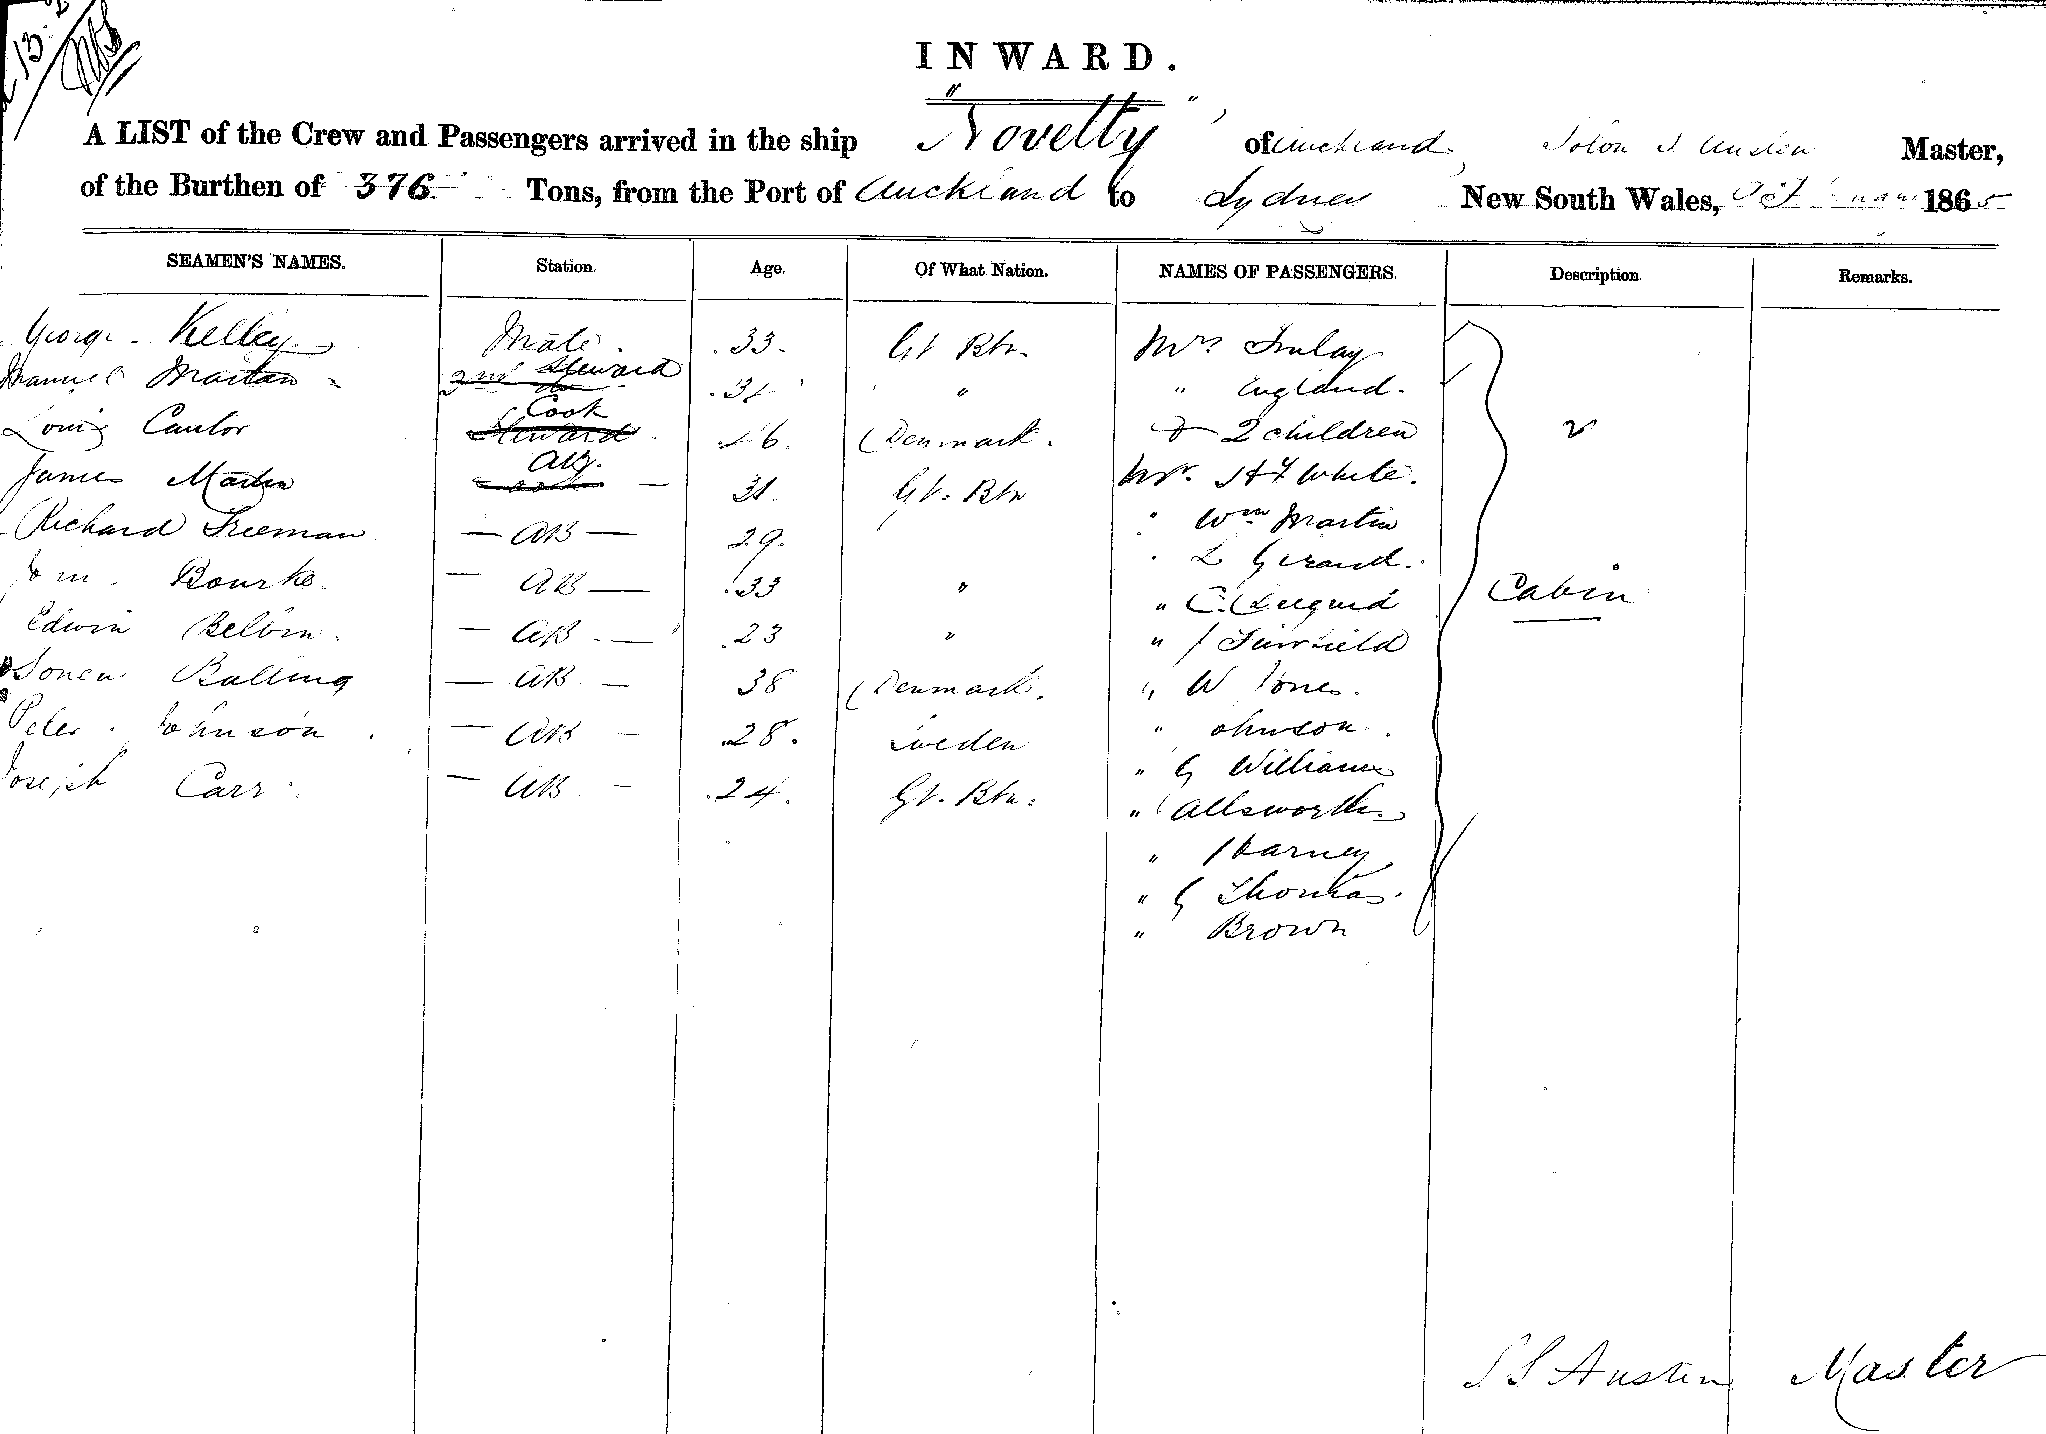 13
INWARD.
A LIST of the Crew and Passengers arrived in the ship "Novelty" of Auckland, Solon S Austen Master,
of the Burthen of 376 Tons, from the Port of Auckland to Sydney New South Wales, Oct 1865
SEAMEN'S NAMES. Station. Age. Of What Nation. NAMES OF PASSENGERS. Description. Remarks.
George Kelley Mate 33 Gt Btn. Mrs Finlay
Martan 2nd Steward " " England.
Louis Cantor Cook Steward 46 Denmark. & 2 children
James Martin AB. 31 Gt. Btn Mr. White.
Richard Freeman AB 29. " Wm Martin
" L Girand.
Bourke AB 33 " " C
Edwin Belbin AB 23 " " J Fairfield
Balling AB 38 Denmark. " W Jones.
Peter Johnson AB 28. Sweden " Johnson
" G Williams
Joseph Carr AB 24. Gt. Btn. " Allsworth
"
" G Thomas.
" Brown
Cabin
S S Austen Master